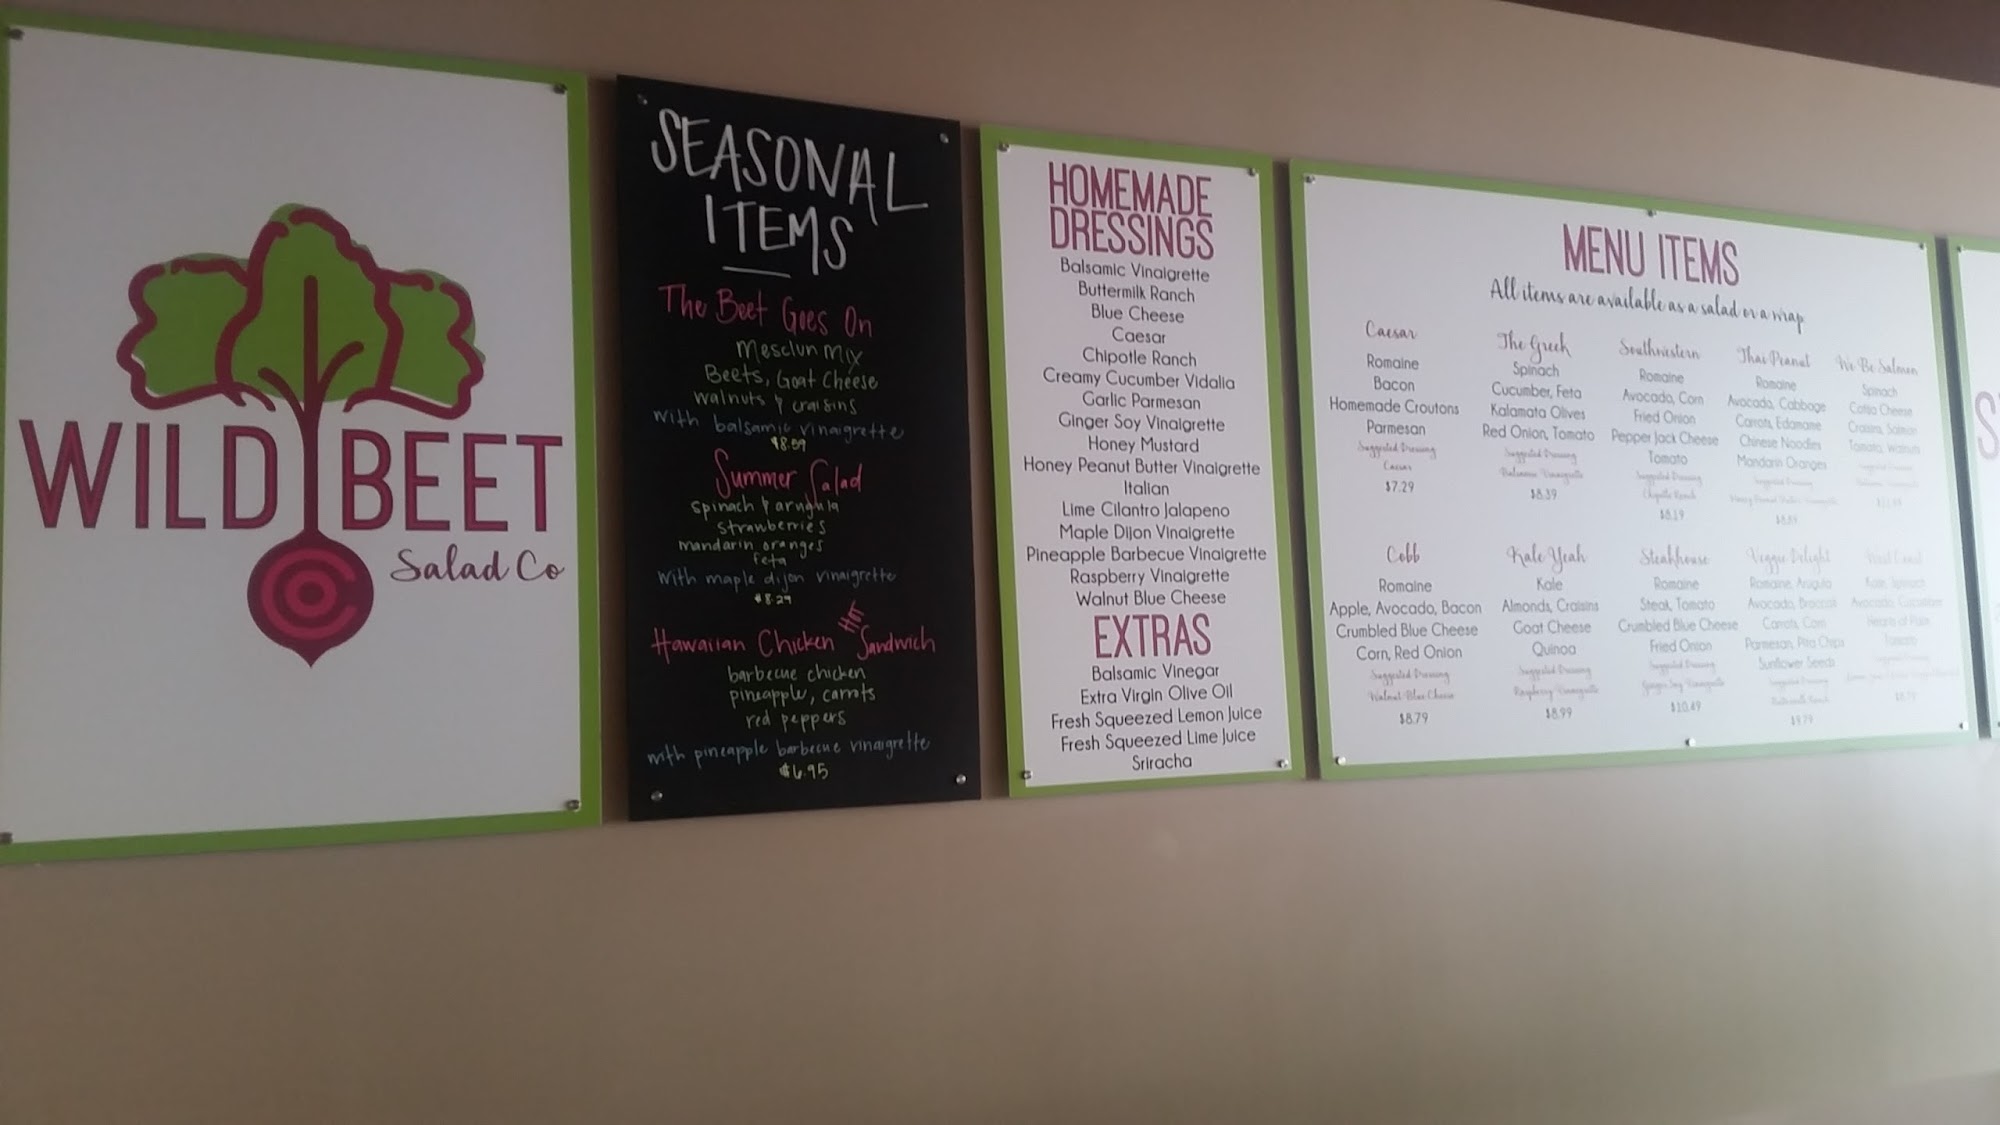 WILD BEET
Salad Co
SEASONAL
ITEMS
The Beet Goes On
Mesclun Mix
Beets, Goat Cheese
walnuts & craisins
with balsamic vinaigrette
$8.59
Summer Salad
spinach & arugula
strawberries
mandarin oranges
feta
with maple dijon vinaigrette
$8.29
Hawaiian Chicken Hot Sandwich
barbecue chicken
pineapple, carrots
red peppers
with pineapple barbecue vinaigrette
$6.95
HOMEMADE
DRESSINGS
Balsamic Vinaigrette
Buttermilk Ranch
Blue Cheese
Caesar
Chipotle Ranch
Creamy Cucumber Vidalia
Garlic Parmesan
Ginger Soy Vinaigrette
Honey Mustard
Honey Peanut Butter Vinaigrette
Italian
Lime Cilantro Jalapeno
Maple Dijon Vinaigrette
Pineapple Barbecue Vinaigrette
Raspberry Vinaigrette
Walnut Blue Cheese
EXTRAS
Balsamic Vinegar
Extra Virgin Olive Oil
Fresh Squeezed Lemon Juice
Fresh Squeezed Lime Juice
Sriracha
MENU ITEMS
All items are available as a salad or a wrap
Caesar
Romaine
Bacon
Homemade Croutons
Parmesan
Suggested Dressing
Caesar
$7.29
The Greek
Spinach
Cucumber, Feta
Kalamata Olives
Red Onion, Tomato
Suggested Dressing
Balsamic Vinaigrette
$8.39
Southwestern
Romaine
Avocado, Corn
Fried Onion
Pepper Jack Cheese
Tomato
Suggested Dressing
Chipotle Ranch
$8.19
Thai Peanut
Romaine
Avocado, Cabbage
Carrots, Edamame
Chinese Noodles
Mandarin Oranges
Suggested Dressing
Honey Peanut Butter Vinaigrette
We Be Salmon
Spinach
Cheese
Craisins, Salmon
Tomato, Walnuts
Suggested Dressing
Balsamic Vinaigrette
Cobb
Romaine
Apple, Avocado, Bacon
Crumbled Blue Cheese
Corn, Red Onion
Suggested Dressing
Walnut Blue Cheese
$8.79
Kale Yeah
Kale
Almonds, Craisins
Goat Cheese
Quinoa
Suggested Dressing
Raspberry Vinaigrette
$8.99
Steakhouse
Romaine
Steak, Tomato
Crumbled Blue Cheese
Fried Onion
Suggested Dressing
Ginger Soy Vinaigrette
$10.49
Veggie Delight
Romaine, Arugula
Avocado, Broccoli
Carrots, Corn
Parmesan, Pita Chips
Sunflower Seeds
Suggested Dressing
Buttermilk Ranch
$9.79
West Coast
Kale, Spinach
Avocado, Cucumber
Hearts of Palm
Tomato
Suggested Dressing
S